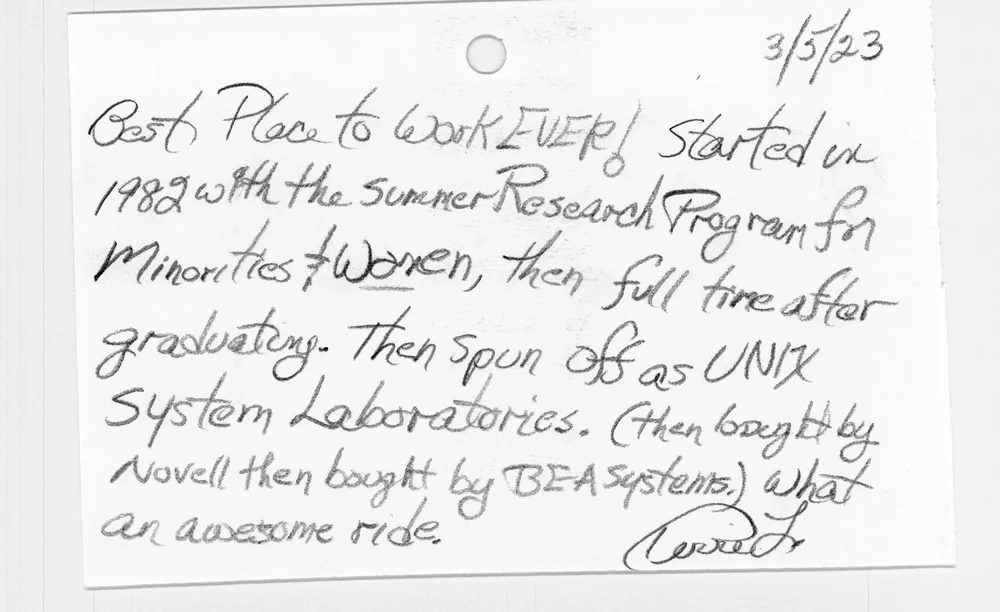 3/5/23
Best Place to Work EVER! Started in
1982 with the Summer Research Program for
Minorities & Women, then full time after
graduating. Then spun off as UNIX
System Laboratories. (then bought by
Novell then bought by BEA Systems.) What
an awesome ride.